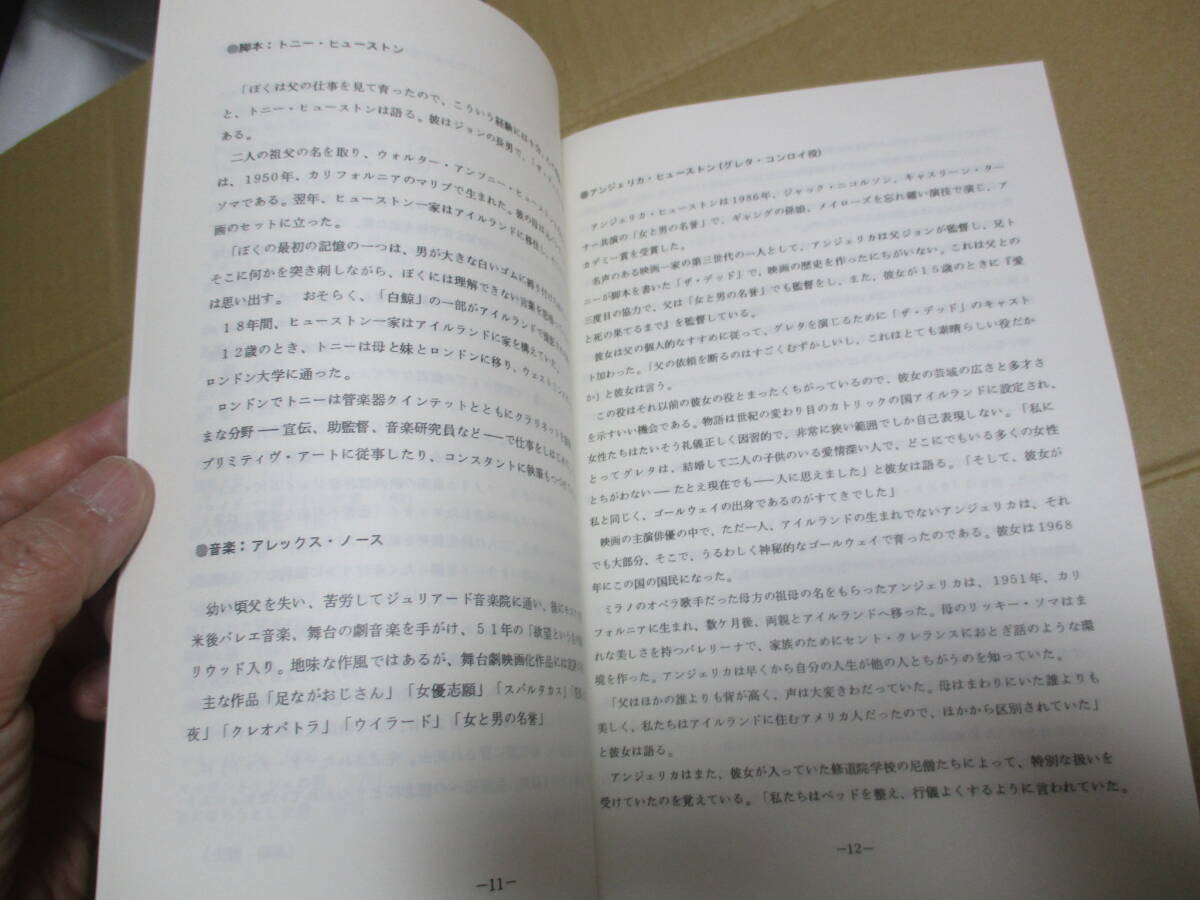 ●脚本：トニー・ヒューストン
「ぼくは父の仕事を見て育ったので、こういう経験には
と、トニー・ヒューストンは語る。彼はジョンの長男で、「ザ・デッ
ある。
二人の祖父の名を取り、ウォルター・アンソニー・ヒュースト
は、1950年、カリフォルニアのマリブで生まれた。彼の母は
ソマである。翌年、ヒューストン一家はアイルランドに移住し、
画のセットに立った。
「ぼくの最初の記憶の一つは、男が大きな白いゴムに縛り付け
そこに何かを突き刺しながら、ぼくには理解できない言葉を
は思い出す。　おそらく、「白鯨」の一部がアイルランドで
１８年間、ヒューストン一家はアイルランドに家を構えていた。
１２歳のとき、トニーは母と妹とロンドンに移り、ウェストミン
ロンドン大学に通った。
ロンドンでトニーは管楽器クインテットとともにクラリネットを
まな分野 ── 宣伝、助監督、音楽研究員など ── で仕事をしはじめ
プリミティヴ・アートに従事したり、コンスタントに執筆もつづけ
●音楽：アレックス・ノース
幼い頃父を失い、苦労してジュリアード音楽院に通い、後にモス
来後バレエ音楽、舞台の劇音楽を手がけ、５１年の「欲望という
リウッド入り。地味な作風ではあるが、舞台劇映画化作品には
主な作品「足ながおじさん」「女優志願」「スパルタカス」
夜」「クレオパトラ」「ウイラード」「女と男の名誉」
－11－
●アンジェリカ・ヒューストン（グレタ・コンロイ役）
アンジェリカ・ヒューストンは1986年、ジャック・ニコルソン、キャスリーン・ター
ナー共演の「女と男の名誉」で、ギャングの孫娘、メイローズを忘れ難い演技で演じ、ア
カデミー賞を受賞した。
名声のある映画一家の第三世代の一人として、アンジェリカは父ジョンが監督し、兄ト
ニーが脚本を書いた「ザ・デッド」で、映画の歴史を作ったにちがいない。これは父との
三度目の協力で、父は「女と男の名誉」でも監督をし、また、彼女が１５歳のときに『愛
と死の果てるまで』を監督している。
彼女は父の個人的なすすめに従って、グレタを演じるために「ザ・デッド」のキャスト
ト加わった。「父の依頼を断るのはすごくむずかしいし、これはとても素晴らしい役だか
か」と彼女は言う。
この役はそれ以前の彼女の役とまったくちがっているので、彼女の芸域の広さと多才さ
を示すいい機会である。物語は世紀の変わり目のカトリックの国アイルランドに設定され、
女性たちはたいそう礼儀正しく因習的で、非常に狭い範囲でしか自己表現しない。「私に
とってグレタは、結婚して二人の子供のいる愛情深い人で、どこにでもいる多くの女性
とちがわない ── たとえ現在でも ── 人に思えました」と彼女は語る。「そして、彼女が
私と同じく、ゴールウェイの出身であるのがすてきでした」
映画の主演俳優の中で、ただ一人、アイルランドの生まれでないアンジェリカは、それ
でも大部分、そこで、うるわしく神秘的なゴールウェイで育ったのである。彼女は1968
年にこの国の国民になった。
ミラノのオペラ歌手だった母方の祖母の名をもらったアンジェリカは、1951年、カリ
フォルニアに生まれ、数ケ月後、両親とアイルランドへ移った。母のリッキー・ソマはま
れな美しさを持つバレリーナで、家族のためにセント・クレランスにおとぎ話のような環
境を作った。アンジェリカは早くから自分の人生が他の人とちがうのを知っていた。
「父はほかの誰よりも背が高く、声は大変きわだっていた。母はまわりにいた誰よりも
美しく、私たちはアイルランドに住むアメリカ人だったので、ほかから区別されていた」
と彼女は語る。
アンジェリカはまた、彼女が入っていた修道院学校の尼僧たちによって、特別な扱いを
受けていたのを覚えている。「私たちはベッドを整え、行儀よくするように言われていた。
－12－